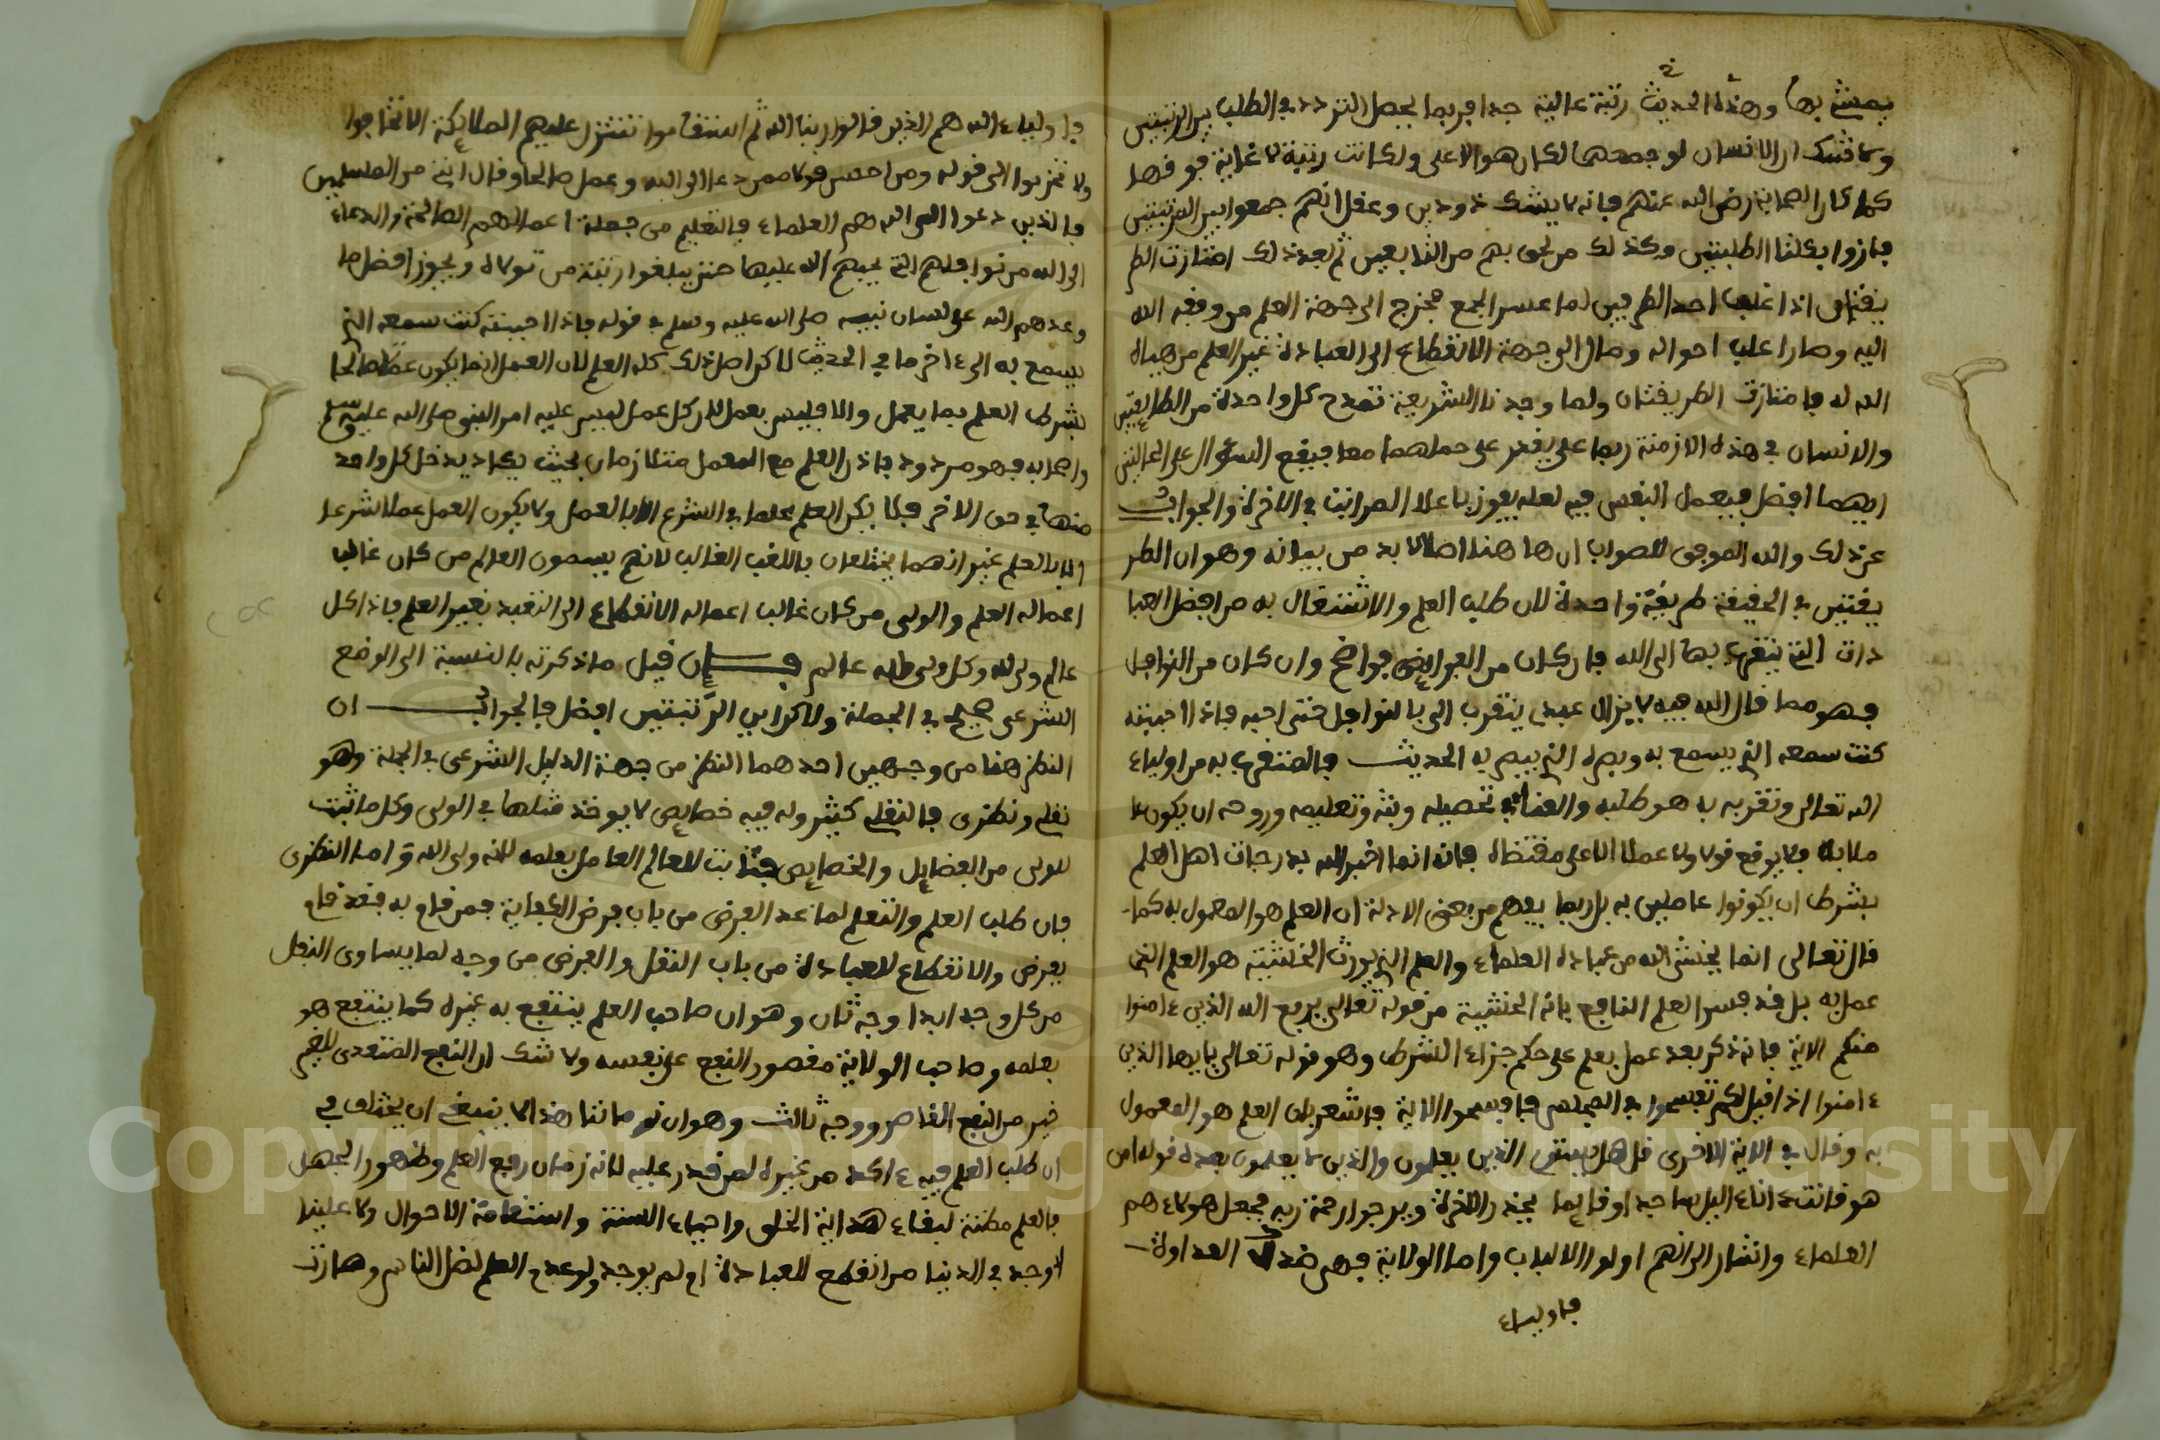 يمشي بها وهذه الحديث رتبة عالية جدا فربما يحصل التردد في الطلب بين الرتبتين
ولا شك ان الانسان لو جمعهما لكان هو الاعلى ولكانت رتبة لا غاية فوقها
كما كان الصحابة رضي الله عنهم فانه لا يشك ذو دين وعقل انهم جمعوا بين المرتبتين
فازوا بكلتا الطلبتين وكذلك من لحق بهم من التابعين ثم بعد ذلك امتازت الطر
يقتان اذا غلب احد الطرفين لما عسر الجمع فخرج الى جهة العلم من وفقه الله
اليه وصار اغلب احواله ومال الى جهة الانقطاع الى العبادة غير العلم من هياه
الله له فامتازت الطريقتان ولما وجدنا الشريعة تمدح كل واحدة من الطريقتين
والانسان في هذه الازمنة ربما على يقدر على حملهما معا فيقع السؤال على الحالتين
ايهما افضل فيعمل النفس فيه لعله يفوز باعلا المراتب في الاخرة والجواب
عن ذلك والله الموفق للصواب ان هاهنا اصلا لا بد من بيانه وهو ان الطر
يقتين في الحقيقة طريقة واحدة لان طلب العلم والاشتغال به من افضل العبا
دات التي يتقرب بها الى الله فان كان من الفرايض فواضح وان كان من النوافل
فهو مما قال الله فيه لا يزال عبدي يتقرب الي بالنوافل حتى احبه فاذا احببته
كنت سمعه الذي يسمع به وبصره الذي يبصر به الحديث فالمتقرب به من اولياء
الله تعالى وتقربه به هو طلبه والعناية في تحصيله وبثه وتعليمه وروحه ان يكون عا
ملا به فلا يوقع قولا ولا عملا الا على مقتضاه فانه انما اخبر الله بدرجات اهل العلم
بشرط ان يكونوا عاملين به بل ربما يفهم من بعض الادلة ان العلم هو المعمول به كما
قال تعالى انما يخشى الله من عباده العلماء والعلم الذي يورث الخشية هو العلم الذي
عمل به بل قد فسر العلم النافع بانه الخشية من قوله تعالى يرفع الله الذين ءامنوا
منكم الاية فانه ذكر بعد عمل بعلم على حكم جزاء الشرط وهو قوله تعالى يايها الذين
ءامنوا اذا قيل لكم تفسحوا في المجلس فافسحوا الاية فاشعر بان العلم هو المعمول
به وقال في الاية الاخرى قل هل يستوي الذين يعلمون والذين لا يعلمون بعد قوله امن
هو قانت ءاناء اليل ساجدا وقايما يحذر الاخرة ويرجوا رحمة ربه فجعل هولاء هم
العلماء واشار الى انهم اولوا الالباب واما الولاية فهي ضد العداوة
فاولياء
فاولياء الله هم الذين قالوا ربنا الله ثم استقاموا تتنزل عليهم الملايكة الا تخافوا
ولا تحزنوا الى قوله ومن احسن قولا ممن دعا الى الله وعمل صالحا وقال انني من المسلمين
فالذين دعوا الى الله هم العلماء فالتعليم من جملة اعمالهم الصالحة والدعاء
الى الله من نوافلهم التي يحبهم الله عليها حتى يبلغوا رتبة من تولاه ويحوز افضل ما
وعدهم الله على لسان نبيه صلى الله عليه وسلم في قوله فاذا احببته كنت سمعه الذي
يسمع به الى ءاخر ما في الحديث لاكن اصل ذلك كله العلم لان العمل انما يكون عملا صالحا
بشرط العلم بما يعمل والا فليس بعمل لان كل عمل ليس عليه امر النبي صلى الله عليه وسلم
واصحابه فهو مردود فاذا العلم مع العمل متلازمان بحيث يكاد يدخل كل واحد
منهما في حق الاخر فلا يكن العلم علما في الشرع الا بالعمل ولا يكون العمل عملا شرعا
الا بالعلم غير انهما يختلفان باللقب الغالب لانهم يسمون العالم من كان غالب
اعماله العلم والولي من كان غالب اعماله الانقطاع الى التعبد بغير العلم فاذا كل
عالم ولي لله وكل ولي لله عالم فان قيل ما ذكرته بالنسبة الى الوضع
الشرعي صحيح في الجملة ولاكن اي الرتبتين افضل فالجواب ان
النظر هنا من وجهين احدهما النظر من جهة الدليل الشرعي في الجملة وهو
نقلي ونظري فالنقلي كثير وله فيه خصايص لا يوخذ مثلها في الولي وكل ما ثبت
للولي من الفضايل والخصايص فثابت للعالم العامل بعلمه لانه ولي الله واما النظري
فان طلب العلم والتعلم لما عد الفرض من باب فرض الكفاية فمن قام به فقد قام
بفرض والانقطاع للعبادة من باب النفل والفرض من وجه لما يساوي النفل
من كل وجه ابدا وجه ثان وهو ان صاحب العلم ينتفع به غيره كما ينتفع هو
بعلمه وصاحب الولاية مقصور النفع على نفسه ولا شك ان النفع المتعدي للغير
خير من النفع القاصر ووجه ثالث وهو ان زماننا هذا لا ينبغي ان يختلف في
ان طلب العلم فيه ءاكد من غيره لمن قدر عليه لانه زمان رفع العلم وظهور الجهل
فالعلم مظنة لبقاء هداية الخلق واحياء السنة واستقامة الاحوال ولا علينا
اوجد في الدنيا من انقطع للعبادة ام لم يوجد ولو عدم العلم لضل الناس وصارت
Copyright © King Saud University